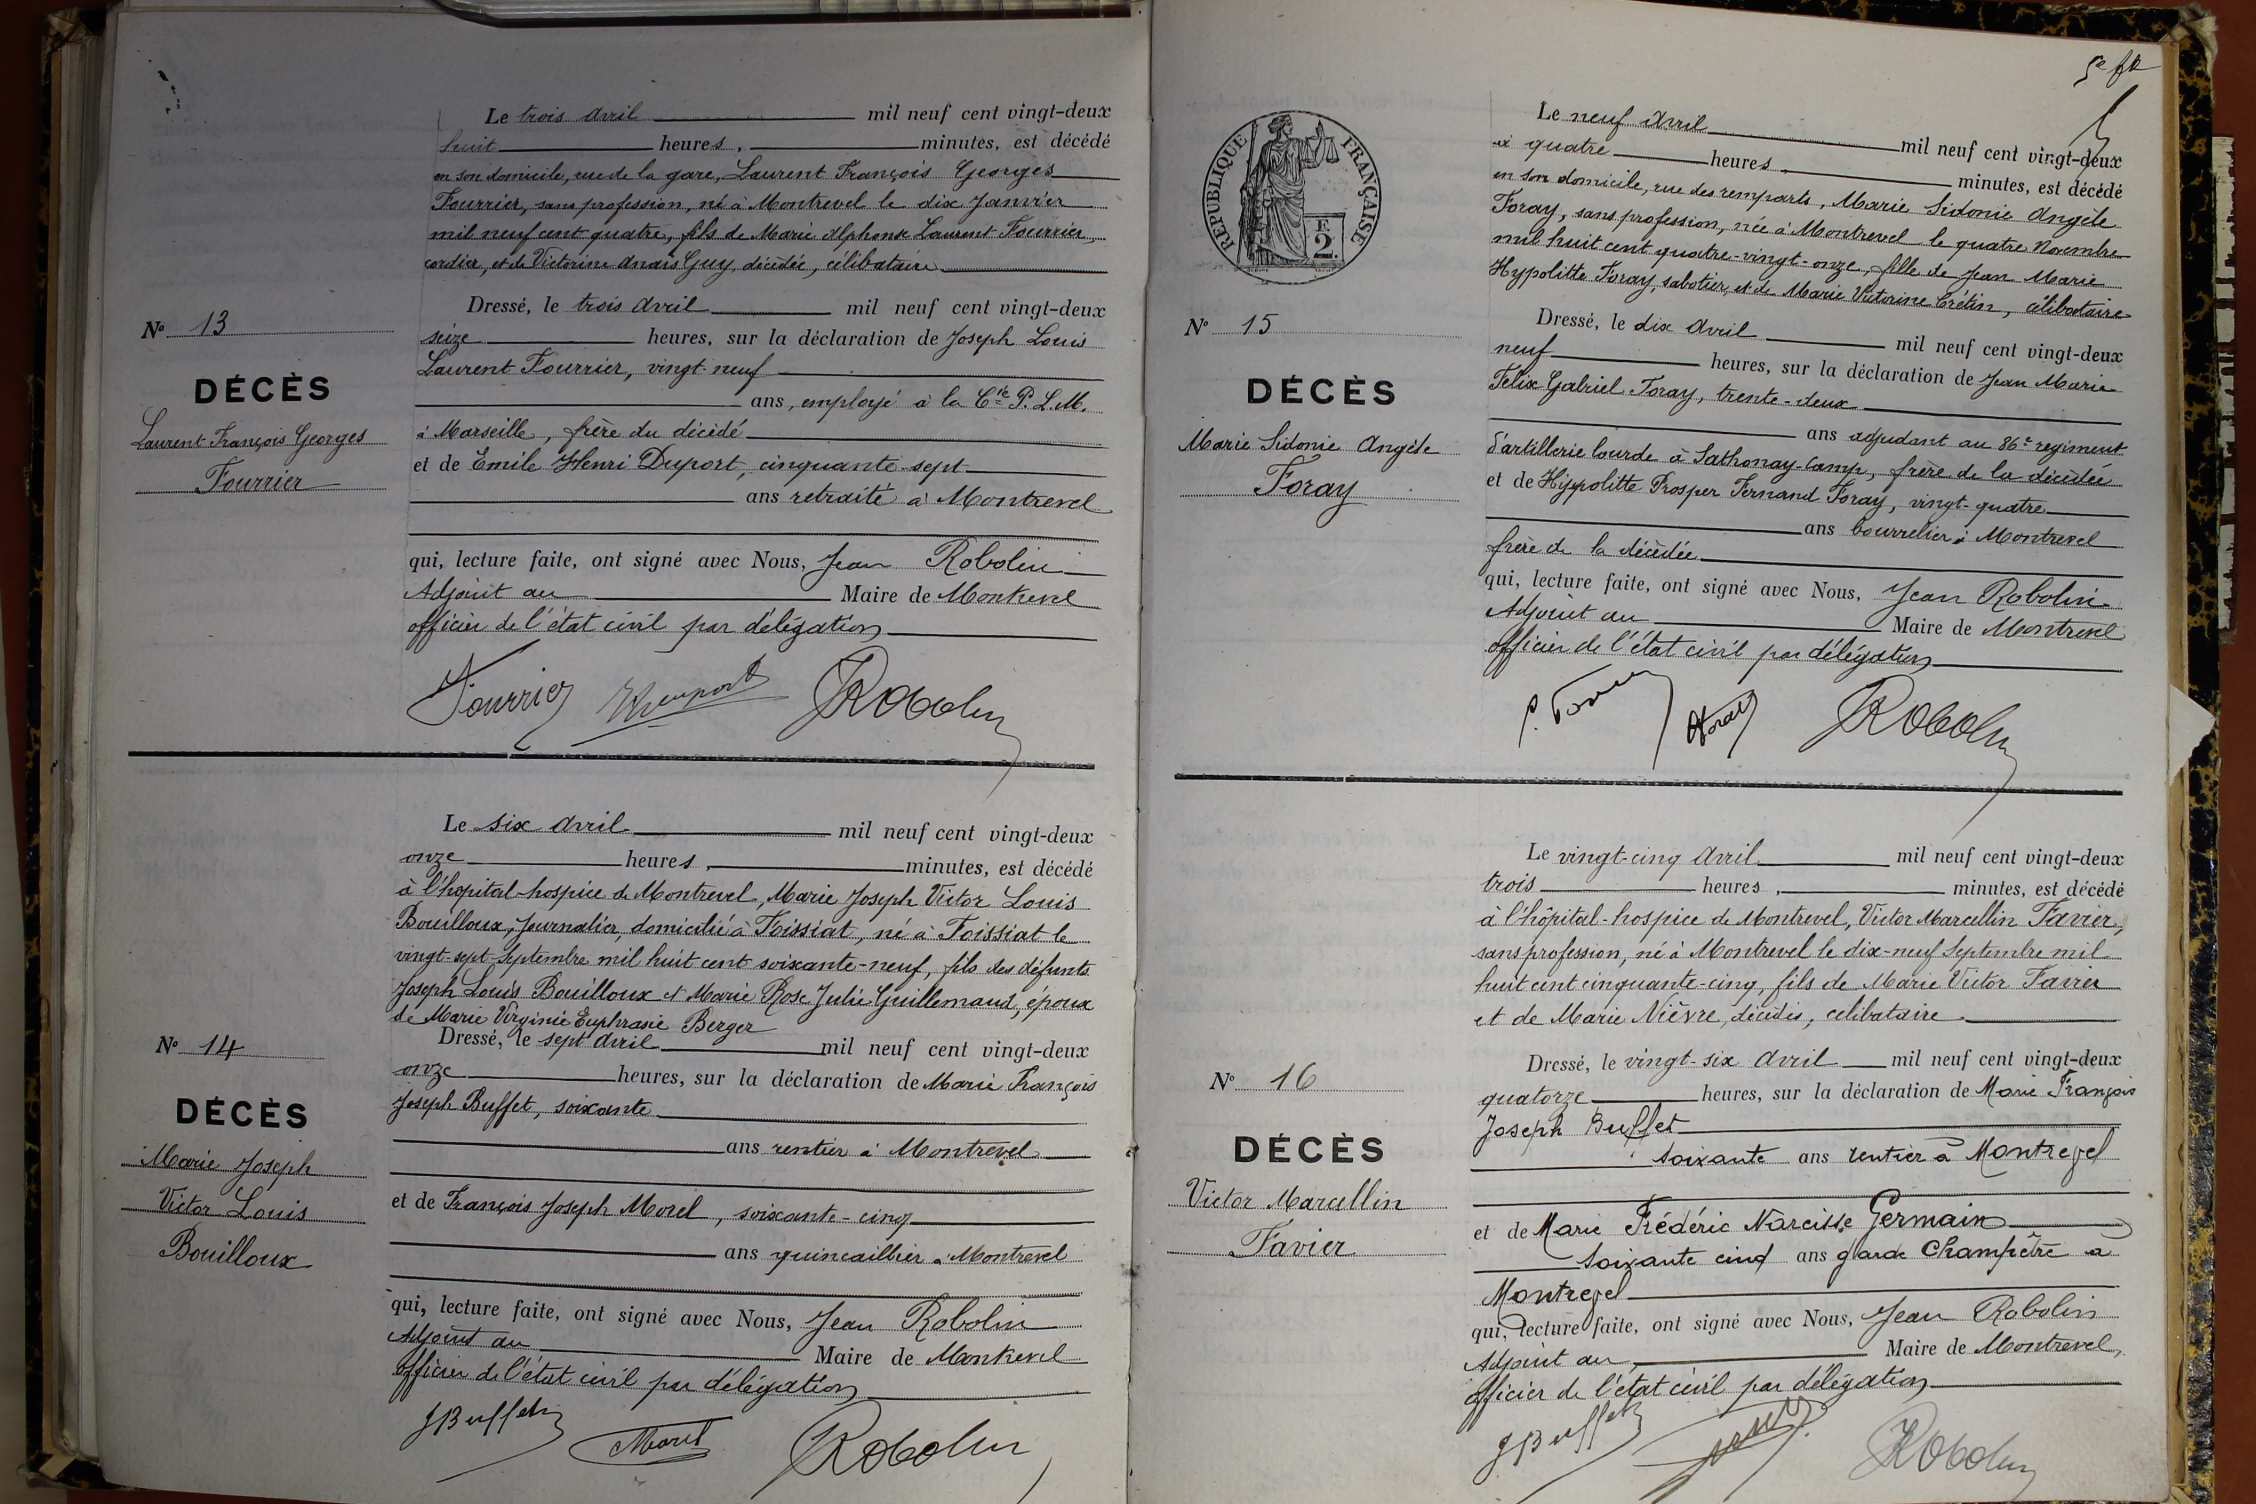 Le trois Avril mil neuf cent vingt-deux
huit heures, minutes, est décédé
en son domicile, rue de la gare, Laurent François Georges
Fourrier, sans profession, né à Montrevel le dix Janvier
mil neuf cent quatre, fils de Marie Alphonse Laurent Fourrier,
cordier, et de Victorine Anaïs Guy, décédée, célibataire
Dressé, le trois Avril mil neuf cent vingt-deux
Nº 13
seize heures, sur la déclaration de Joseph Louis
Laurent Fourrier, vingt-neuf
DÉCÈS
ans, employé à la Cie P. L. M.
Laurent François Georges
à Marseille, frère du décédé
Fourrier
et de Emile Henri Duport, cinquante-sept
ans retraité à Montrevel
qui, lecture faite, ont signé avec Nous, Jean Robolin
Adjoint au Maire de Montrevel
officier de l'état civil par délégation
Fourrier Duport JRobolin
Le six Avril mil neuf cent vingt-deux
onze heures, minutes, est décédé
à l'hopital-hospice de Montrevel, Marie Joseph Victor Louis
Bouilloux, Journalier, domicilié à Foissiat, né à Foissiat le
vingt-sept Septembre mil huit cent soixante-neuf, fils des défunts
Joseph Louis Bouilloux et Marie Rose Julie Guillemaud, époux
de Marie Virginie Euphrasie Berger
Nº 14
Dressé, le sept Avril mil neuf cent vingt-deux
onze heures, sur la déclaration de Marie François
DÉCÈS
Joseph Buffet, soixante
ans rentier à Montrevel
Marie Joseph
Victor Louis
Bouilloux
et de François Joseph Morel, soixante-cinq
ans quincaillier à Montrevel
qui, lecture faite, ont signé avec Nous, Jean Robolin
Adjoint au Maire de Montrevel
officier de l'état civil par délégation
JBuffet Morel JRobolin
RÉPUBLIQUE FRANÇAISE
F
2.
Le neuf Avril mil neuf cent vingt-deux
à quatre heures, minutes, est décédé
en son domicile, rue des remparts, Marie Sidonie Angèle
Foray, sans profession, née à Montrevel le quatre Novembre
mil huit cent quatre-vingt-onze, fille de Jean Marie
Hypolitte Foray, sabotier, et de Marie Victorine Crétin, célibataire
Nº 15
Dressé, le dix Avril mil neuf cent vingt-deux
neuf heures, sur la déclaration de Jean Marie
DÉCÈS
Félix Gabriel Foray, trente-deux
ans adjudant au 86e regiment
Marie Sidonie Angèle
Foray
d'artillerie lourde à Sathonay-Camp, frère de la décédée
et de Hyppolitte Prosper Fernand Foray, vingt-quatre
ans bourrelier à Montrevel
frère de la décédée
qui, lecture faite, ont signé avec Nous, Jean Robolin
Adjoint au Maire de Montrevel
officier de l'état civil par délégation
Foray JRobolin
Le vingt-cinq Avril mil neuf cent vingt-deux
trois heures, minutes, est décédé
à l'hôpital-hospice de Montrevel, Victor Marcellin Favier,
sans profession, né à Montrevel le dix-neuf Septembre mil
huit cent cinquante-cinq, fils de Marie Victor Favier
et de Marie Nièvre, décédés, célibataire
Nº 16
Dressé, le vingt-six Avril mil neuf cent vingt-deux
quatorze heures, sur la déclaration de Marie François
DÉCÈS
Joseph Buffet
soixante ans rentier à Montrevel
Victor Marcellin
Favier
et de Marie Frédéric Narcisse Germain
soixante cinq ans garde champêtre à
Montrevel
qui, lecture faite, ont signé avec Nous, Jean Robolin
Adjoint au Maire de Montrevel,
officier de l'état civil par délégation
JBuffet JRobolin